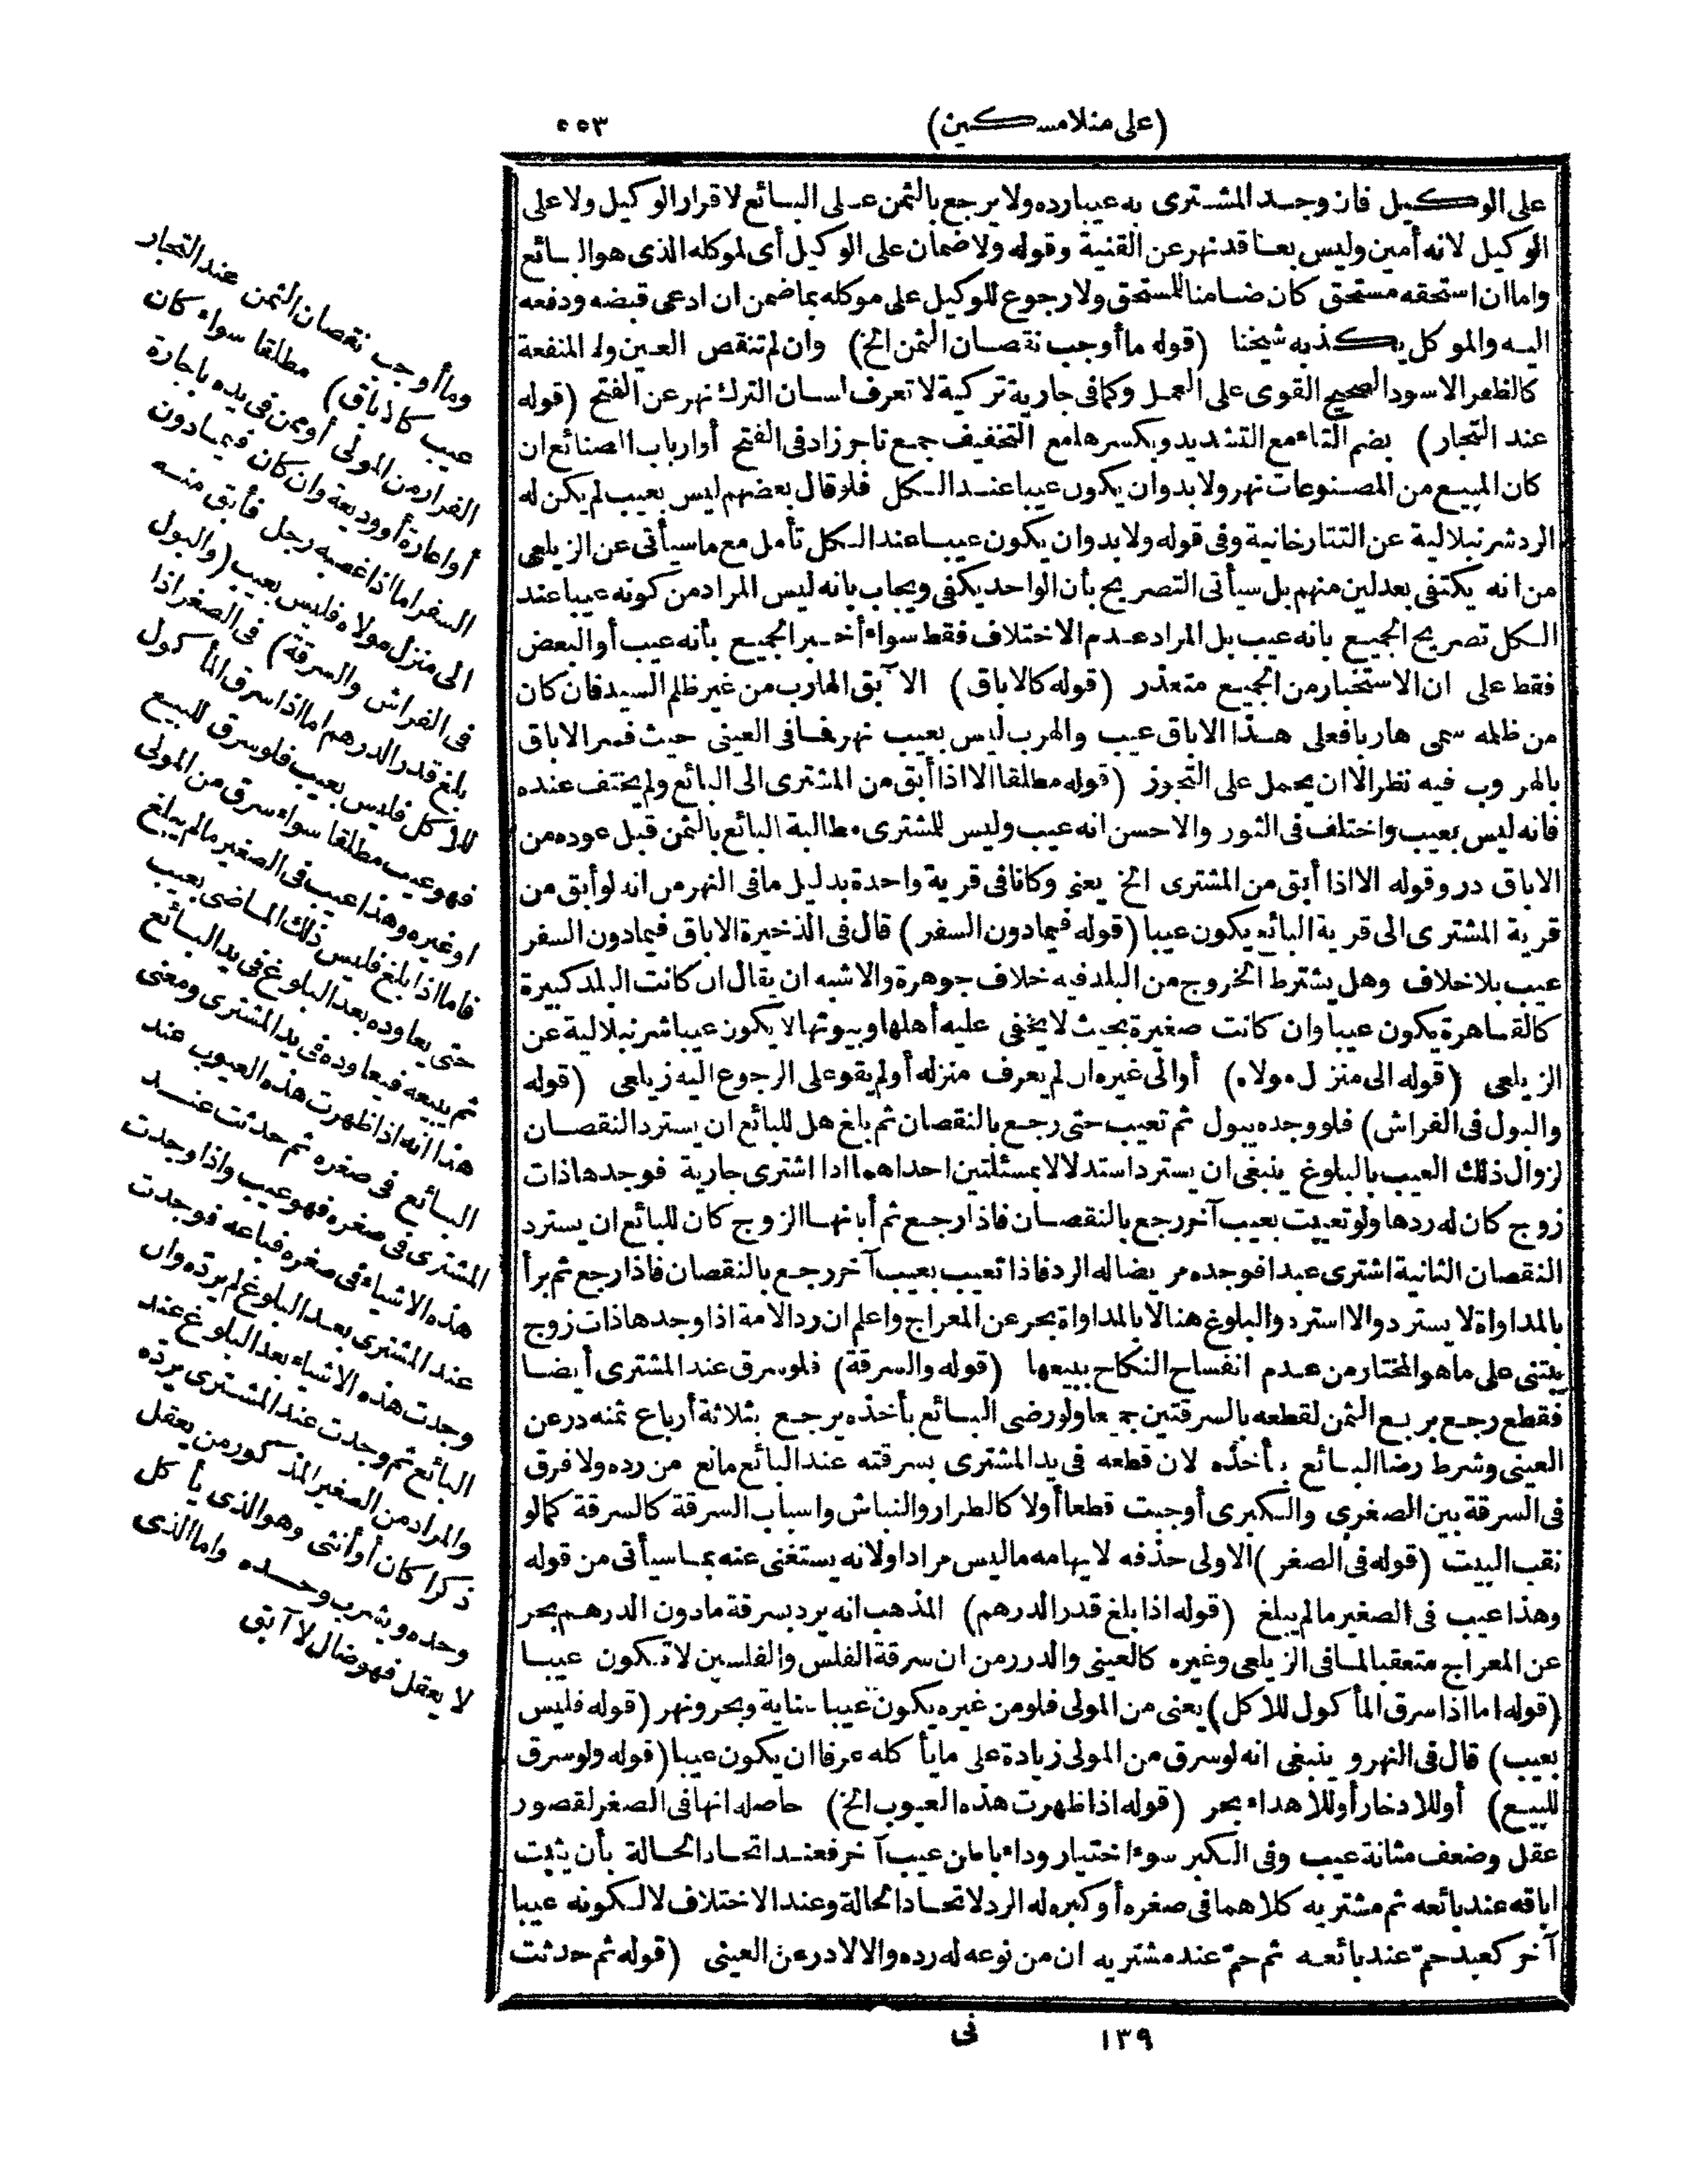 (على منلا مسكين) ٥٥٣
على الوكيل فان وجد المشترى به عيبا رده ولا يرجع بالثمن على البائع لاقرار الوكيل ولا على
الوكيل لانه أمين وليس بعاقد نهر عن القنية وقوله ولا ضمان على الوكيل أى لموكله الذى هو البائع
واما ان استحقه مستحق كان ضامنا للمستحق ولا رجوع للوكيل على موكله بما ضمن ان ادعى قبضه ودفعه
اليه والموكل يكذبه شيخنا (قوله ما أوجب نقصان الثمن الخ) وان لم تنقص العين ولا المنفعة
كالظفر الاسود الصحيح القوى على العمل وكما فى جارية تركية لا تعرف لسان الترك نهر عن الفتح (قوله
عند التجار) بضم التاء مع التشديد وبكسرها مع التخفيف جمع تاجر زاد فى الفتح أو ارباب الصنائع ان
كان المبيع من المصنوعات نهر ولا بد وان يكون عيبا عند الكل فلو قال بعضهم ليس بعيب لم يكن له
الرد شرنبلالية عن التتارخانية وفى قوله ولا بد وان يكون عيبا عند الكل تأمل مع ما سيأتى عن الزيلعى
من انه يكتفى بعدلين منهم بل سيأتى التصريح بأن الواحد يكفى ويجاب بانه ليس المراد من كونه عيبا عند
الكل تصريح الجميع بانه عيب بل المراد عدم الاختلاف فقط سواء أخبر الجميع بأنه عيب أو البعض
فقط على ان الاستخبار من الجميع متعذر (قوله كالاباق) الآبق الهارب من غير ظلم السيد فان كان
من ظلمه سمى هاربا فعلى هذا الاباق عيب والهرب ليس بعيب نهر فما فى العينى حيث فسر الاباق
بالهروب فيه نظر الا ان يحمل على التجوز (قوله مطلقا الا اذا أبق من المشترى الى البائع ولم يختف عنده
فانه ليس بعيب واختلف فى الثور والاحسن انه عيب وليس للمشترى مطالبة البائع بالثمن قبل عوده من
الاباق در وقوله الا اذا أبق من المشترى الخ يعنى وكانا فى قرية واحدة بدليل ما فى النهر من انه لو أبق من
قرية المشترى الى قرية البائع يكون عيبا (قوله فيما دون السفر) قال فى الذخيرة الاباق فيما دون السفر
عيب بلا خلاف وهل يشترط الخروج من البلد فيه خلاف جوهرة والاشبه ان يقال ان كانت البلد كبيرة
كالقاهرة يكون عيبا وان كانت صغيرة بحيث لا يخفى عليه أهلها وبيوتها لا يكون عيبا شرنبلالية عن
الزيلعى (قوله الى منزل مولاه) أو الى غيره ان لم يعرف منزله أو لم يقو على الرجوع اليه زيلعى (قوله
والبول فى الفراش) فلو وجده يبول ثم تعيب حتى رجع بالنقصان ثم بلغ هل للبائع ان يسترد النقصان
لزوال ذلك العيب بالبلوغ ينبغى ان يسترد استدلالا بمسئلتين احداهما اذا اشترى جارية فوجدها ذات
زوج كان له ردها ولو تعيبت بعيب آخر رجع بالنقصان فاذا رجع ثم أبانها الزوج كان للبائع ان يسترد
النقصان الثانية اشترى عبدا فوجده مريضا له الرد فاذا تعيب بعيب آخر رجع بالنقصان فاذا رجع ثم برأ
بالمداواة لا يسترد والا استرد والبلوغ هنا لا بالمداواة بحر عن المعراج واعلم ان رد الامة اذا وجدها ذات زوج
يبتنى على ما هو المختار من عدم انفساح النكاح ببيعها (قوله والسرقة) فلو سرق عند المشترى أيضا
فقطع رجع بربع الثمن لقطعه بالسرقتين جميعا ولو رضى البائع بأخذه يرجع بثلاثة أرباع ثمنه در عن
العينى وشرط رضا البائع بأخذه لان قطعه فى يد المشترى بسرقته عند البائع مانع من رده ولا فرق
فى السرقة بين الصغرى والكبرى أوجبت قطعا أولا كالطرار والنباش واسباب السرقة كالسرقة كما لو
نقب البيت (قوله فى الصغر) الاولى حذفه لايهامه ما ليس مرادا ولانه يستغنى عنه بما سيأتى من قوله
وهذا عيب فى الصغير ما لم يبلغ (قوله اذا بلغ قدر الدرهم) المذهب انه يرد بسرقة ما دون الدرهم بحر
عن المعراج متعقبا لما فى الزيلعى وغيره كالعينى والدرر من ان سرقة الفلس والفلسين لا تكون عيبا
(قوله اما اذا سرق المأكول للاكل) يعنى من المولى فلو من غيره يكون عيبا عناية وبحر ونهر (قوله فليس
بعيب) قال فى النهر وينبغى انه لو سرق من المولى زيادة على ما يأكله عرفا ان يكون عيبا (قوله ولو سرق
للبيع) أو للادخار أو للاهداء بحر (قوله اذا ظهرت هذه العيوب الخ) حاصله انها فى الصغر لقصور
عقل وضعف مثانة عيب وفى الكبر سوء اختيار وداء باطن عيب آخر فعند اتحاد الحالة بأن ثبت
اباقه عند بائعه ثم مشتريه كلاهما فى صغره أو كبره له الرد لاتحاد الحالة وعند الاختلاف لا لكونه عيبا
آخر كعبد حمّ عند بائعه ثم حمّ عند مشتريه ان من نوعه له رده والا لا در عن العينى (قوله ثم حدثت
وما أوجب نقصان الثمن عند التجار
عيب كاباق) مطلقا سواء كان
الفرار من المولى أو ممن فى يده باجارة
أو اعارة أو وديعة وان كان فيما دون
السفر اما اذا غصبه رجل فأبق منه
الى منزل مولاه فليس بعيب (والبول
فى الفراش والسرقة) فى الصغر اذا
بلغ قدر الدرهم اما اذا سرق المأكول
للاكل فليس بعيب فلو سرق للبيع
فهو عيب مطلقا سواء سرق من المولى
او غيره وهذا عيب فى الصغير ما لم يبلغ
فاما اذا بلغ فليس ذلك الماضى بعيب
حتى يعاوده بعد البلوغ فى يد البائع
ثم يبيعه فيعاوده فى يد المشترى ومعنى
هذا انه اذا ظهرت هذه العيوب عند
البائع فى صغره ثم حدثت عند
المشترى فى صغره فهو عيب واذا وجدت
هذه الاشياء فى صغره فباعه فوجدت
عند المشترى بعد البلوغ لم يردّه وان
وجدت هذه الاشياء بعد البلوغ عند
البائع ثم وجدت عند المشترى يردّه
والمراد من الصغير المذكور من يعقل
ذكرا كان أو أنثى وهو الذى يأكل
وحده ويشرب وحده واما الذى
لا يعقل فهو ضال لا آبق
١٣٩ فى